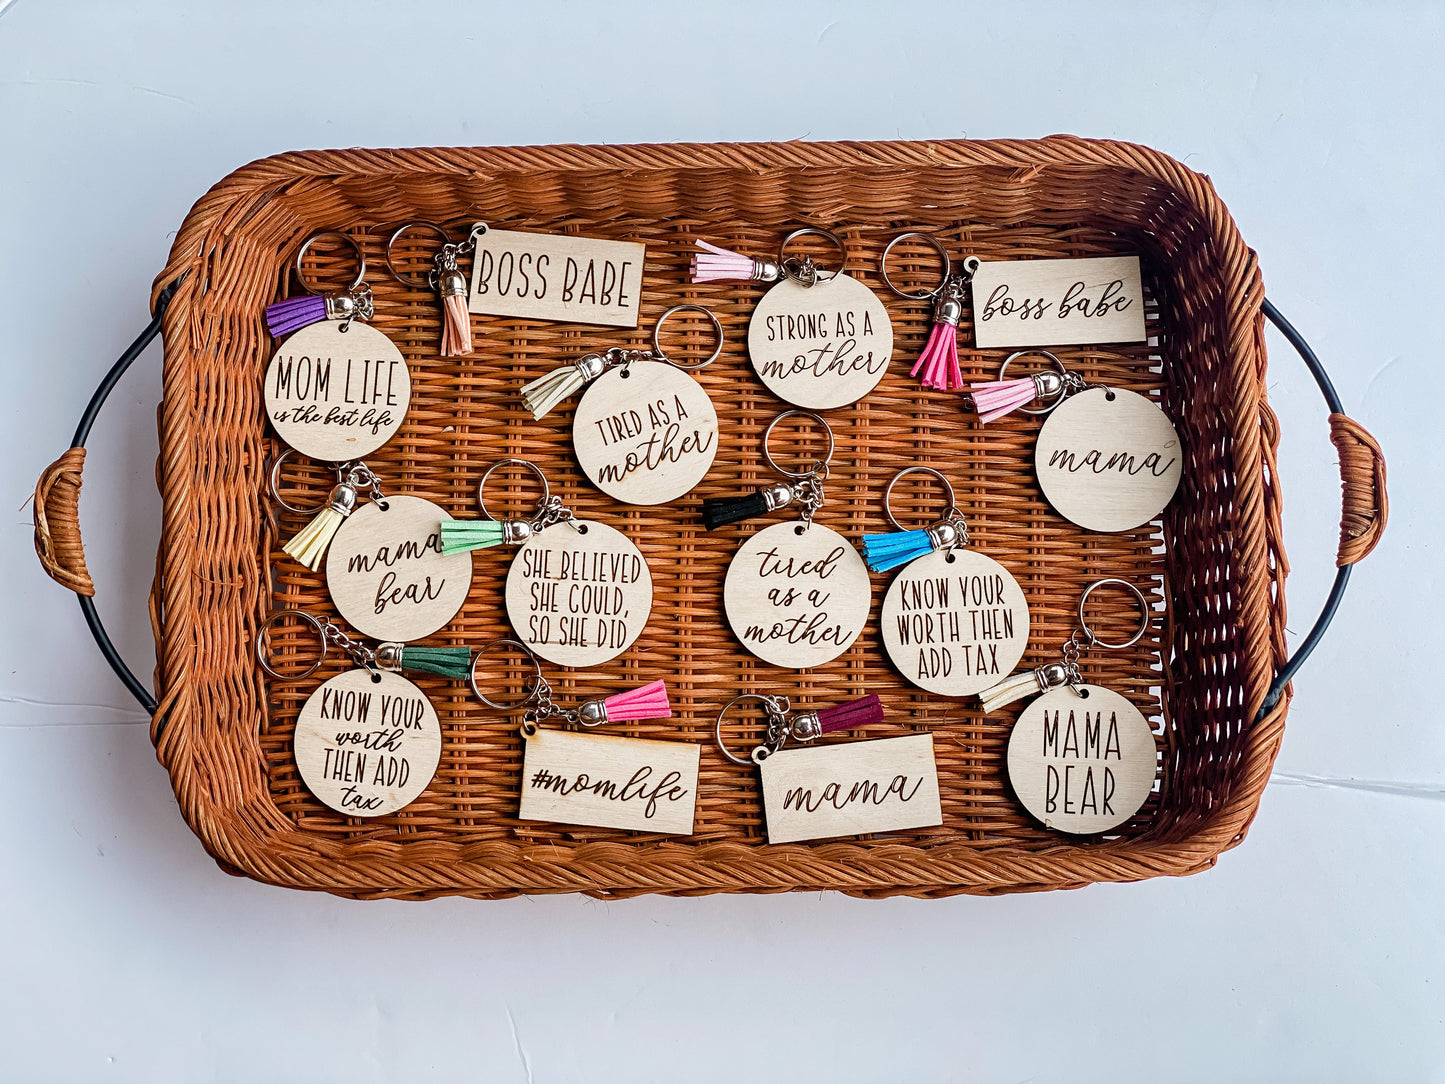 BOSS BABE
boss babe
STRONG AS A
mother
MOM LIFE
is the best life
TIRED AS A
mother
mama
mama
bear
SHE BELIEVED
SHE COULD,
SO SHE DID
tired
as a
mother
KNOW YOUR
WORTH THEN
ADD TAX
KNOW YOUR
worth
THEN ADD
tax
#momlife
mama
MAMA
BEAR